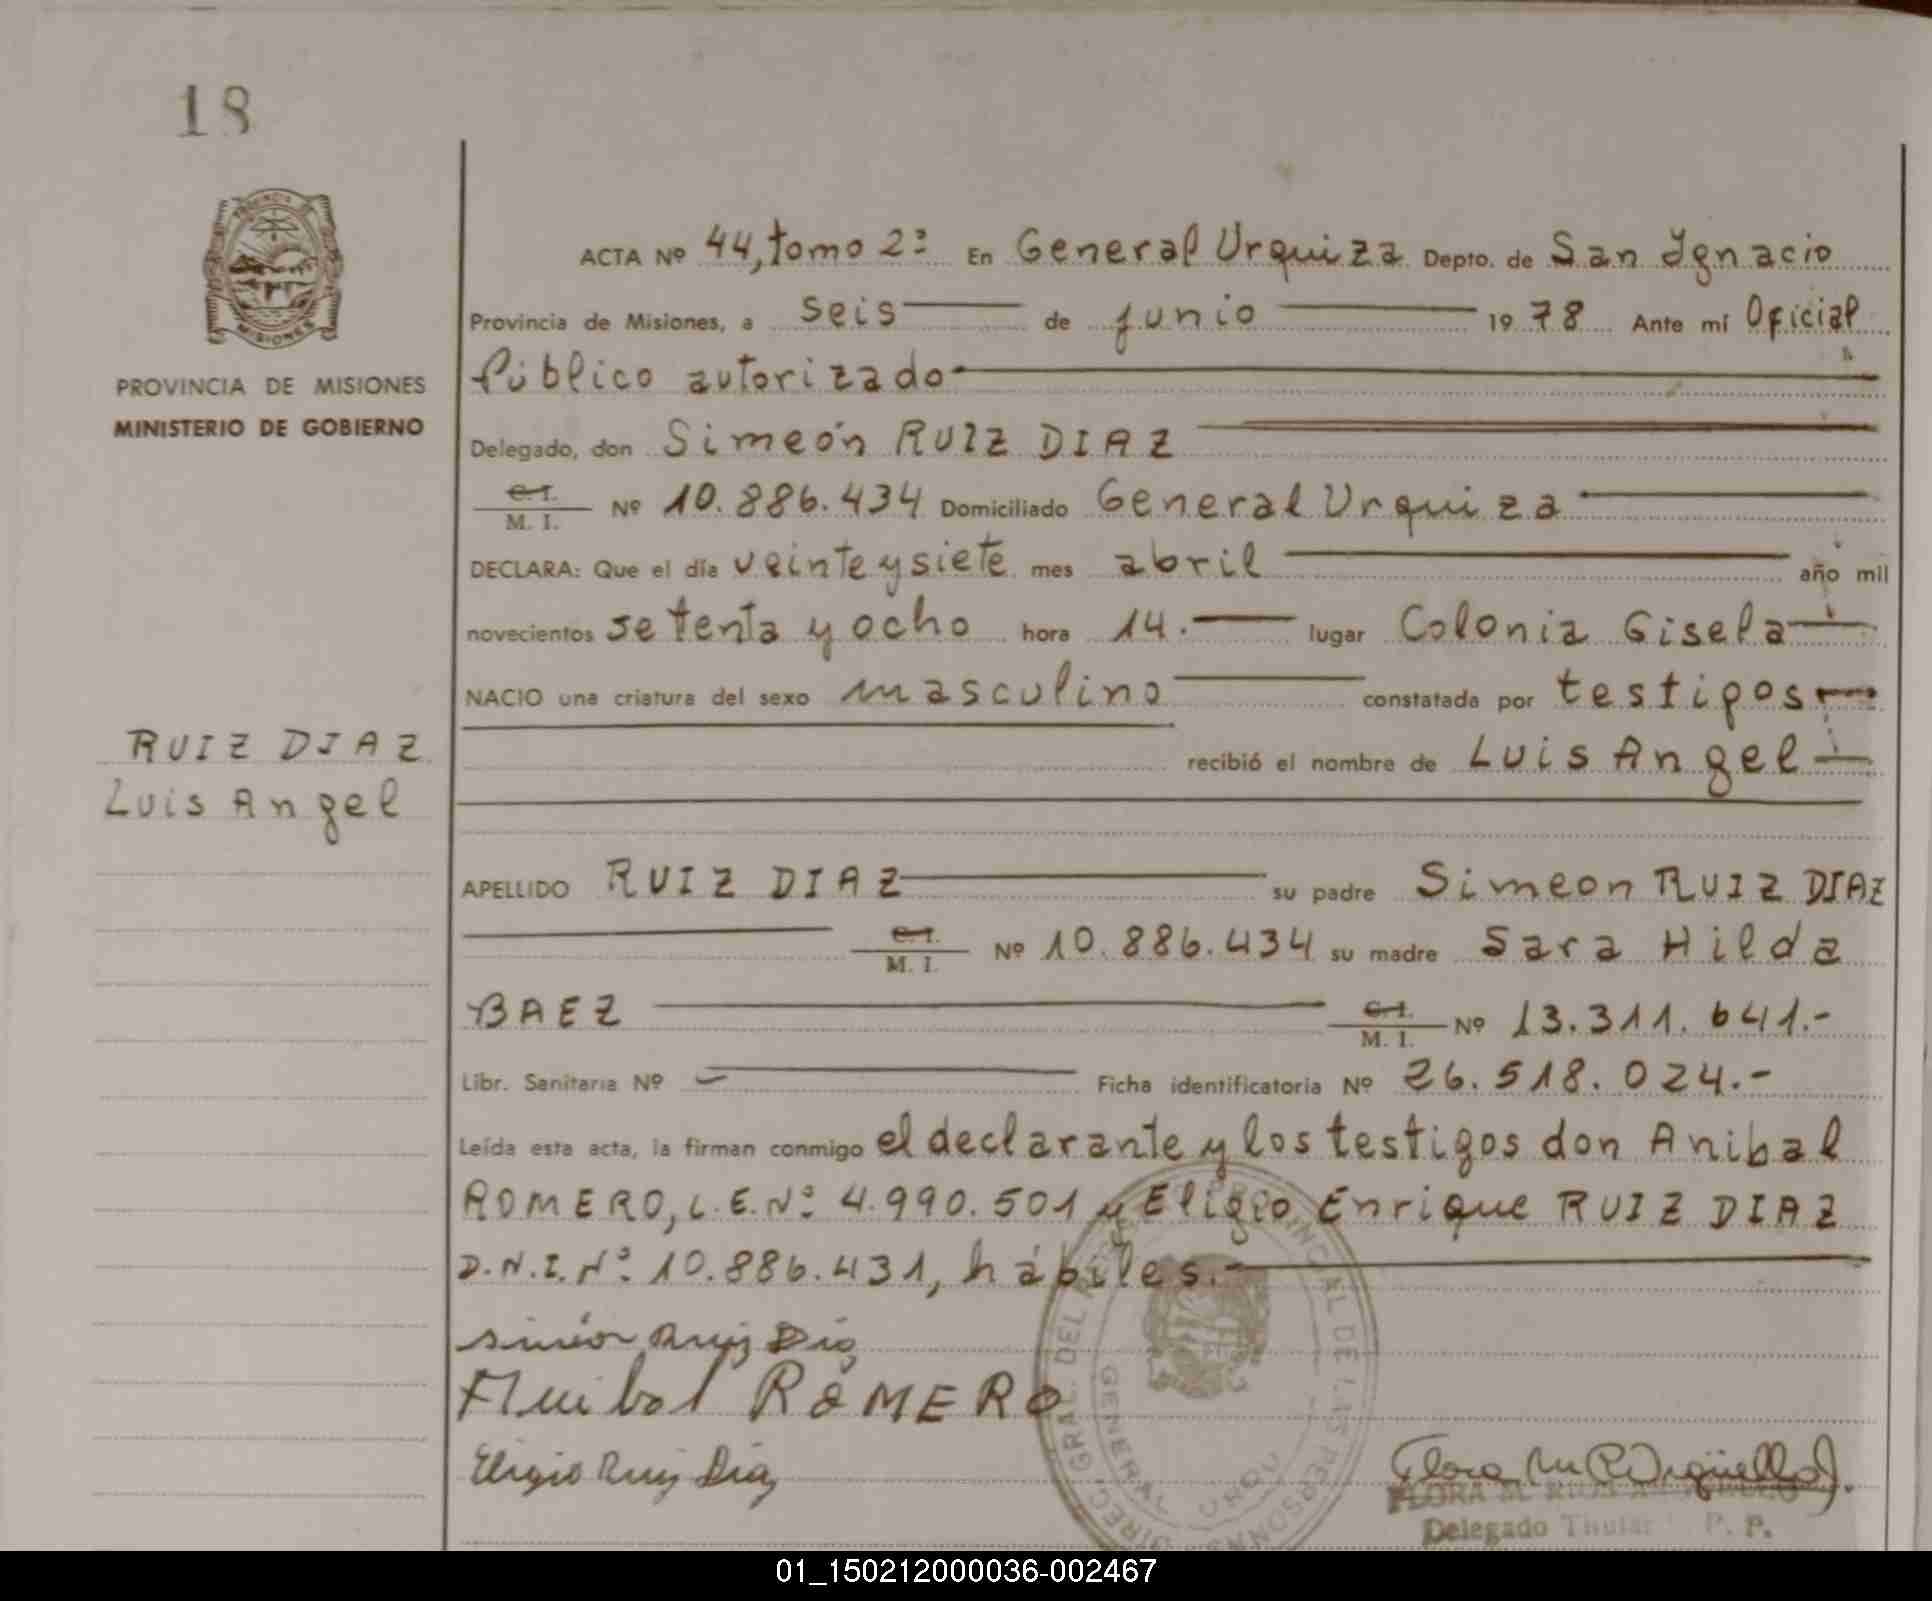 18
PROVINCIA DE MISIONES
MINISTERIO DE GOBIERNO
RUIZ DIAZ
Luis Angel
ACTA Nº 44, tomo 2º En General Urquiza Depto. de San Ignacio
Provincia de Misiones, a seis de junio 1978 Ante mí Oficial
Público autorizado
Delegado, don Simeón RUIZ DIAZ
C.I.
M. I. Nº 10.886.434 Domiciliado General Urquiza
DECLARA: Que el día veinte y siete mes abril año mil
novecientos setenta y ocho hora 14.- lugar Colonia Gisela
NACIO una criatura del sexo masculino constatada por testigos
recibió el nombre de Luis Angel
APELLIDO RUIZ DIAZ su padre Simeon RUIZ DIAZ
C.I.
M. I. Nº 10.886.434 su madre Sara Hilda
BAEZ C.I.
M. I. Nº 13.311.641.-
Libr. Sanitaria Nº - Ficha identificatoria Nº 26.518.024.-
Leída esta acta, la firman conmigo el declarante y los testigos don Anibal
ROMERO, L.E.Nº 4.990.501 y Eligio Enrique RUIZ DIAZ
D.N.I.Nº 10.886.431, hábiles.-
Simeón Ruiz Diaz
Anibal ROMERO
Eligio Ruiz Diaz
DIREC. GRAL. DEL PROVINCIAL DE LAS PERSONAS
GENERAL URQU
Flora M R Argüello
FLORA M. RIOS ARGUELLO
Delegado Titular P. P.
01_150212000036-002467